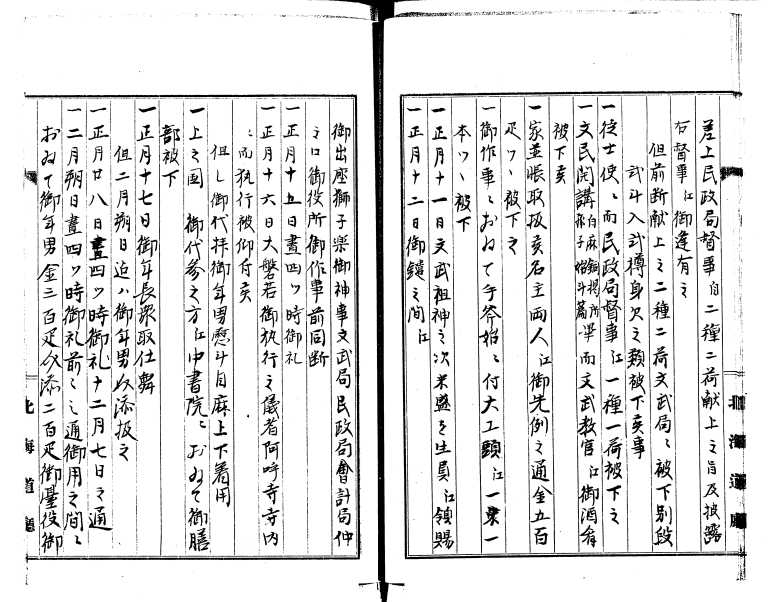 差上民政局督事ゟ二種二荷献上之旨及披露
右督事江御逢有之
但前断献上之二種二荷文武局ニ被下別段
武斗入弐樽身欠之類被下候事
一徒士使ニ而民政局督事江一種一荷被下之
一文民開講 白麻綱掲所 孫子始計篇 畢而文武教官江御酒肴
被下候
一家並帳取扱候名主両人江御先例之通金五百
疋ツヽ被下之
一御作事ニおゐて手斧始ニ付大工頭江一束一
本ツヽ被下
一正月十一日文武祖神之次米盛を生員江領賜
一正月十二日御鏡之間江
御出座獅子楽御神事文武局民政局會計局仲
之口御役所御作事前同断
一正月十五日晝四ツ時御礼
一正月十六日大盤若御執行之儀者阿吽寺寺内
ニ而執行被仰付候
但し御代拝御年男熨斗目麻上下着用
一上之国 御代参之方江中書院ニおゐて御膳
部被下
一正月十七日御年長衆取仕舞
但二月朔日迄ハ御年男以添扱之
一正月廿八日晝四ツ時御礼十二月七日之通
一二月朔日晝四ツ時御礼前ニ之通御用之間ニ
おゐて御年男金三百疋以添二百疋御臺役御
北海道廳
北海道廳